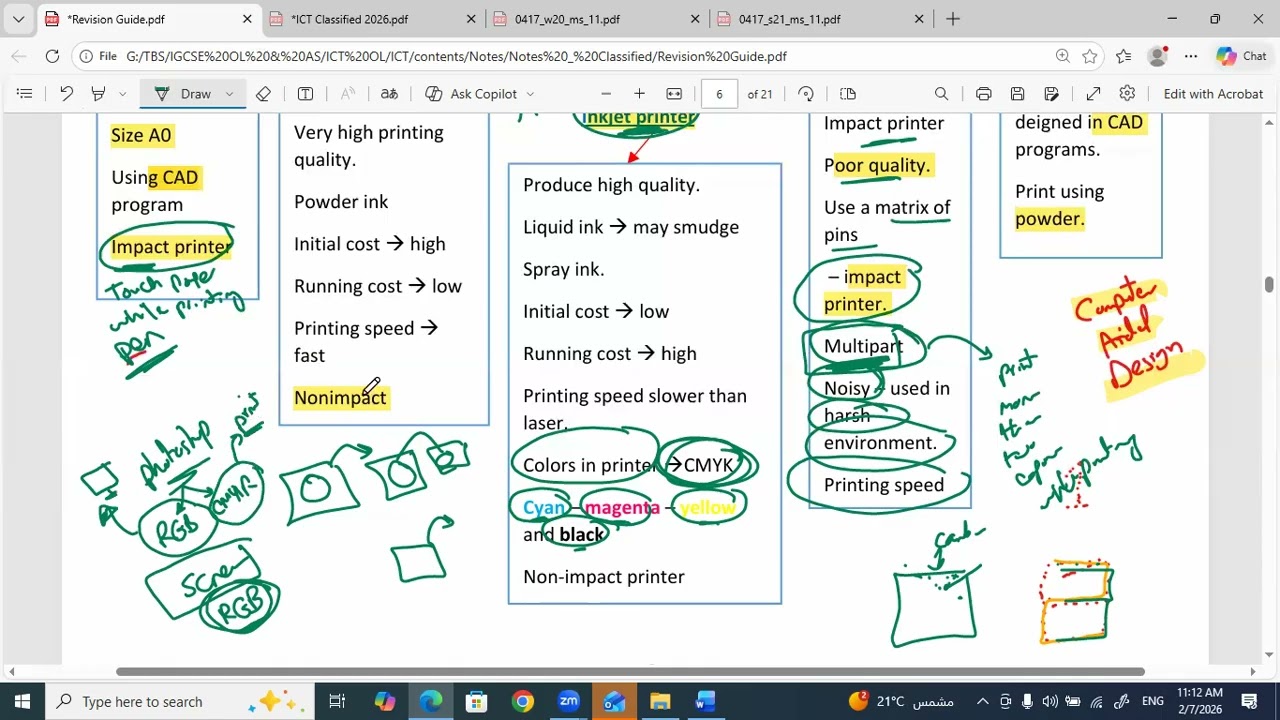 *Revision Guide.pdf
*ICT Classified 2026.pdf
0417_w20_ms_11.pdf
0417_s21_ms_11.pdf
File
G:/TBS/IGCSE%20OL%20&%20AS/ICT%20OL/ICT/contents/Notes/Notes%20_%20Classified/Revision%20Guide.pdf
Chat
Draw
Ask Copilot
6 of 21
Edit with Acrobat
Size A0
Using CAD
program
Impact printer
Touch Paper
while printing
pen
Very high printing
quality.
Powder ink
Initial cost → high
Running cost → low
Printing speed →
fast
Nonimpact
Inkjet printer
Produce high quality.
Liquid ink → may smudge
Spray ink.
Initial cost → low
Running cost → high
Printing speed slower than
laser.
Colors in printer →CMYK
Cyan – magenta – yellow
and black
Non-impact printer
Impact printer
Poor quality.
Use a matrix of
pins
– impact
printer.
Multipart
Noisy – used in
harsh
environment.
Printing speed
deigned in CAD
programs.
Print using
powder.
Computer
Aided
Design
print
more
than
printing
photoshop
print
RGB
CMYK
Screen
RGB
Type here to search
21°C مشمس
ENG
11:12 AM
2/7/2026